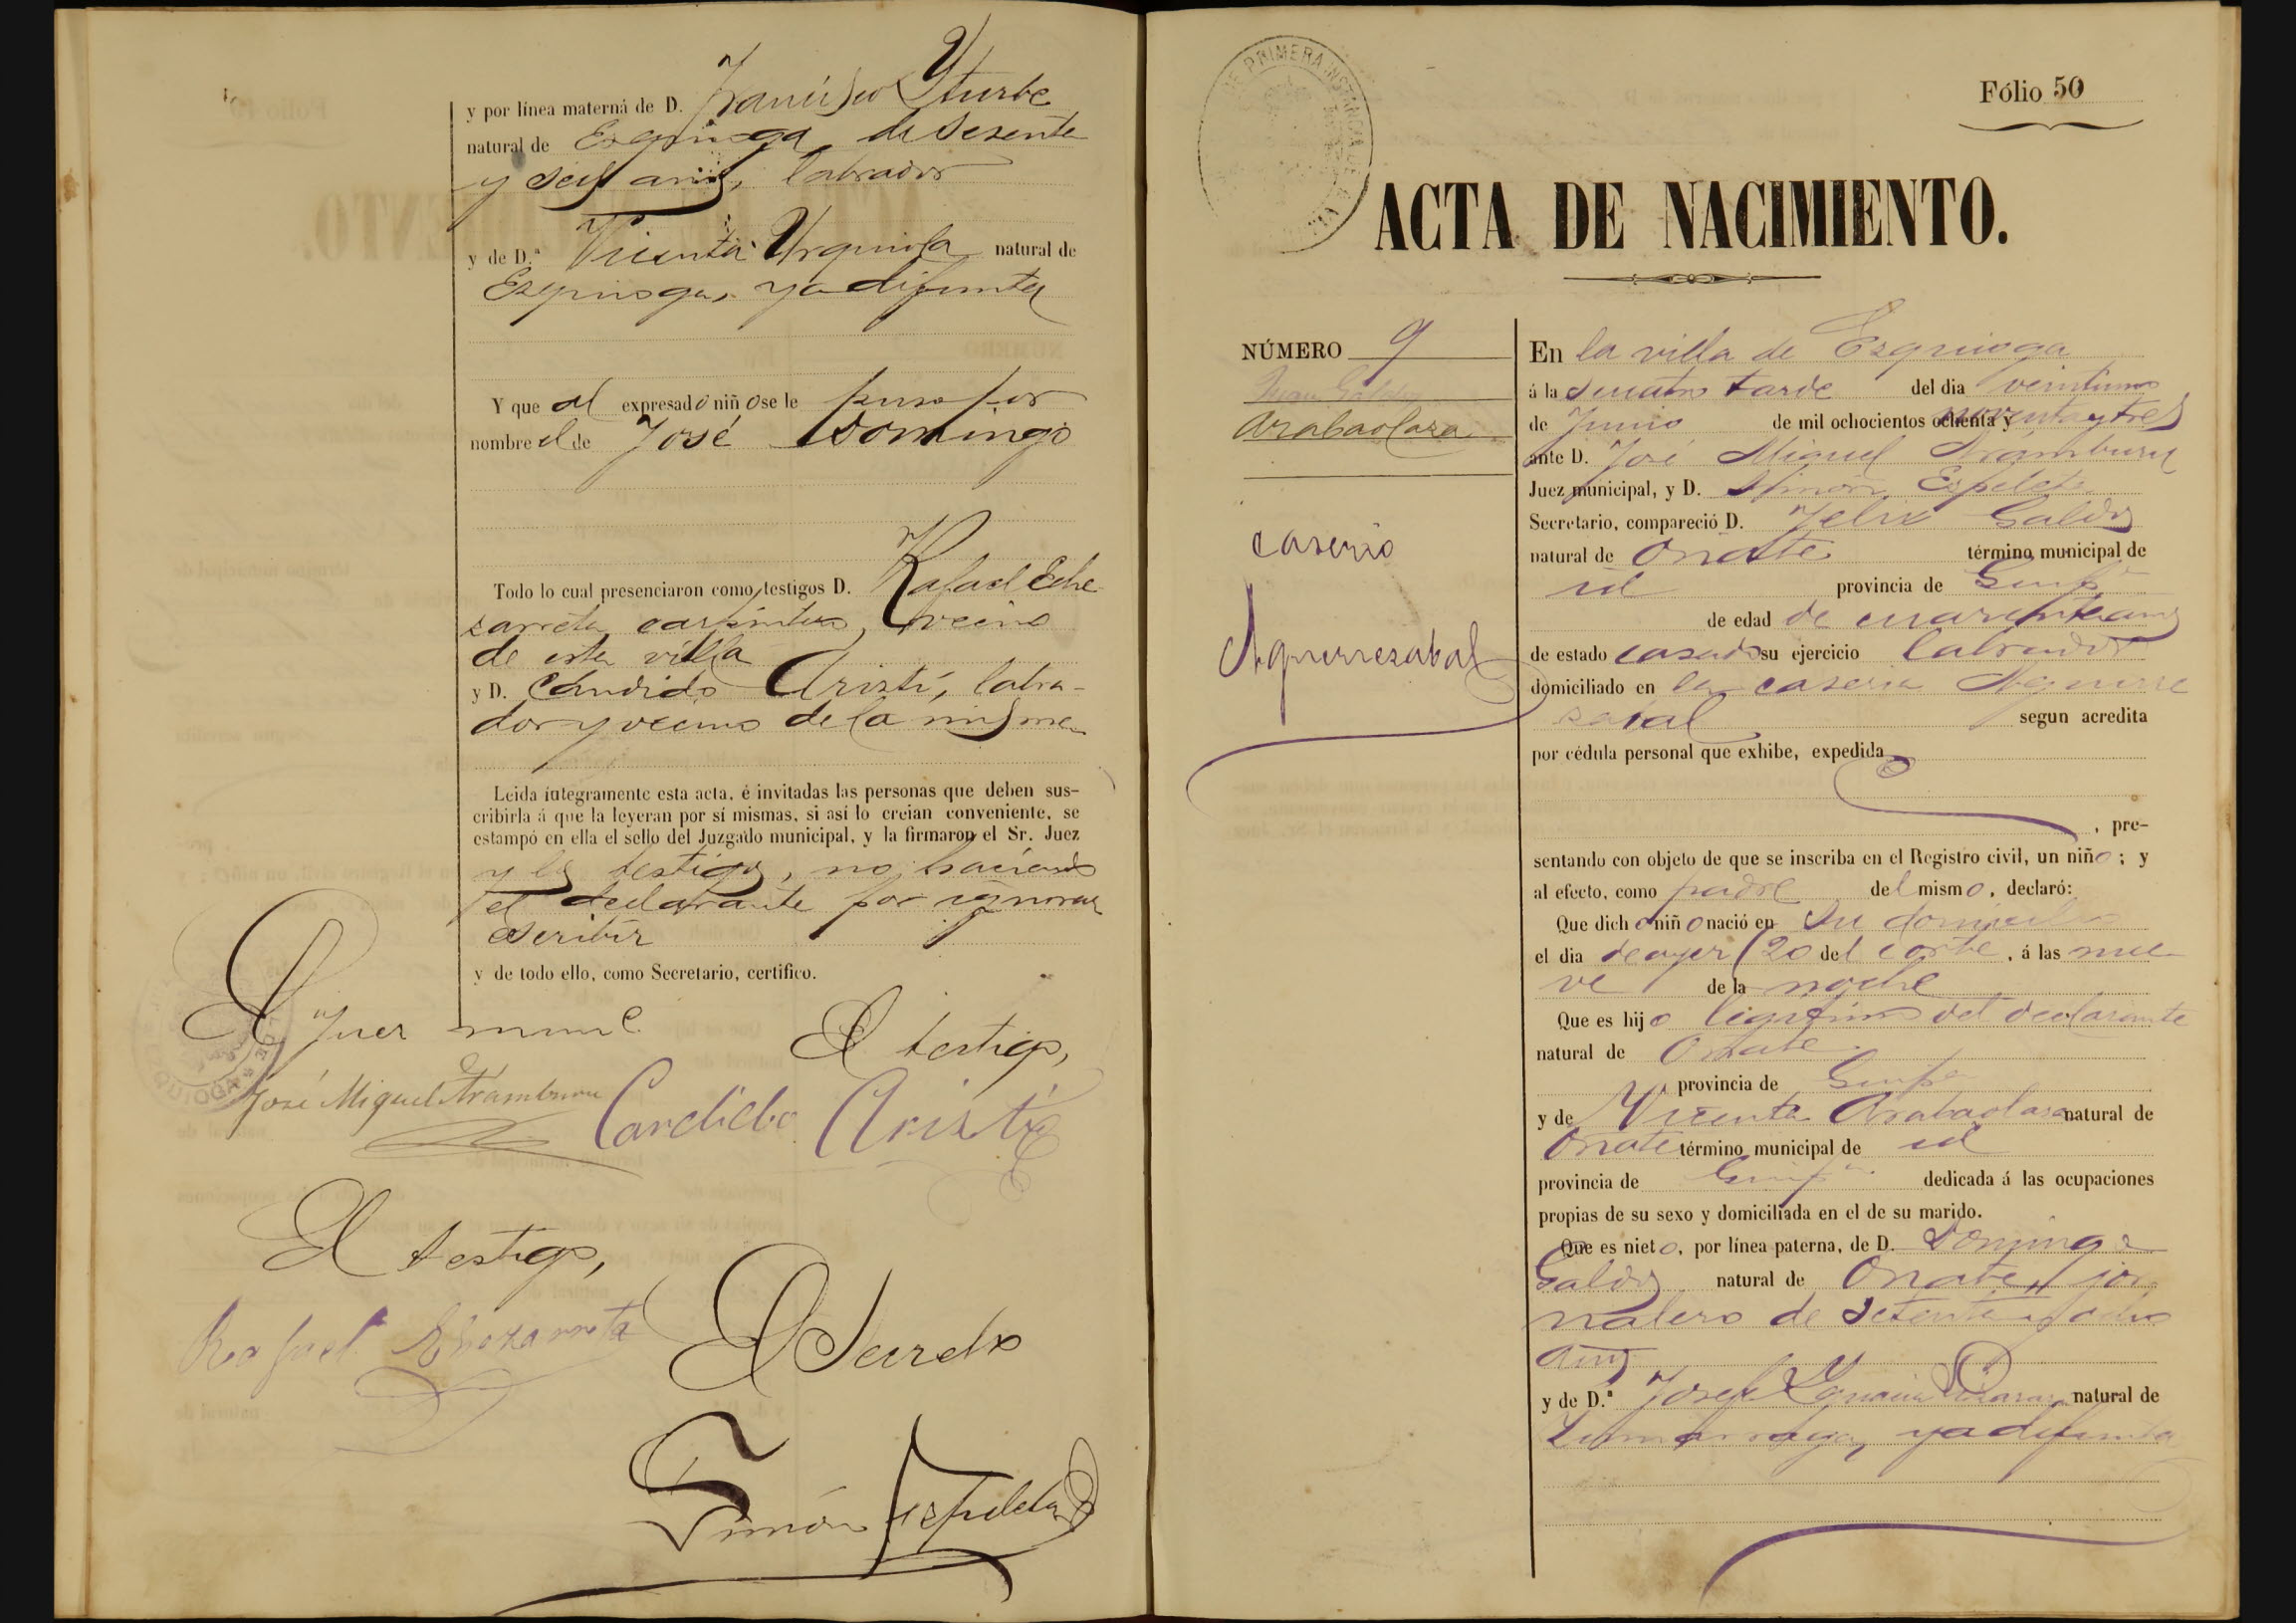 y por línea materna de D. Francisco Yturbe
natural de Ezquioga de Sesenta
y seis años, labrador
y de D.ª Vicenta Urquiola natural de
Ezquioga, ya difunta
Y que al expresado niño se le puso por
nombre el de José Domingo
Todo lo cual presenciaron como testigos D. Rafael Eche-
zarreta, carpintero, vecino
de esta villa
y D. Cándido Aristi, labra-
dor y vecino de la misma
Leida integramente esta acta, é invitadas las personas que deben sus-
cribirla á que la leyeran por sí mismas, si así lo creian conveniente, se
estampó en ella el sello del Juzgado municipal, y la firmaron el Sr. Juez
y los testigos, no haciendo
el declarante por ignorar
escribir
y de todo ello, como Secretario, certifico.
El Juez munl.
El testigo,
José Miguel Aramburu
Candido Aristi
El testigo,
Rafael Echezarreta
El Secreto
Simón Ezpeleta
Fólio 50
DE PRIMERA INSTANCIA DE
ACTA DE NACIMIENTO.
NÚMERO 9
Juan Galdos
Arabaolaza
caserio
Aguirrezabal
En la villa de Ezquioga
á las cuatro tarde del dia veintiuno
de Junio de mil ochocientos ochenta y noventa y tres
ante D. José Miguel Aramburu
Juez municipal, y D. Simón Ezpeleta
Secretario, compareció D. Felix Galdos
natural de Oñate término municipal de
id provincia de Guipª
de edad de cuarenta años
de estado casado su ejercicio labrador
domiciliado en la caseria Aguirre
zabal segun acredita
por cédula personal que exhibe, expedida
, pre-
sentando con objeto de que se inscriba en el Registro civil, un niño; y
al efecto, como padre del mismo, declaró:
Que dicho niño nació en su domicilio
el dia de ayer (20 del corte, á las nue-
ve de la noche
Que es hijo legítimo del declarante
natural de Oñate
provincia de Guipª
y de Vicenta Arabaolaza natural de
Oñate término municipal de id
provincia de Guipª dedicada á las ocupaciones
propias de su sexo y domiciliada en el de su marido.
Que es nieto, por línea paterna, de D. Domingo
Galdos natural de Oñate, jor-
nalero de setenta y ocho
años
y de D.ª Josefa Ygnacia natural de
Zumarraga, ya difunta